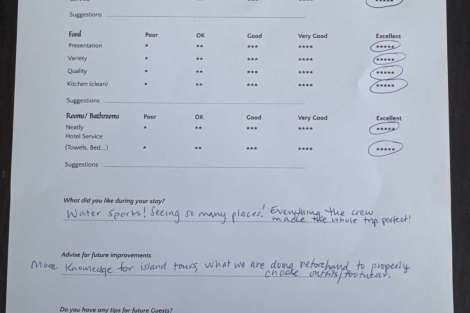 Suggestions
Food Poor OK Good Very Good Excellent
Presentation * ** *** **** *****
Variety * ** *** **** *****
Quality * ** *** **** *****
Kitchen (clean) * ** *** **** *****
Suggestions
Rooms/ Bathrooms Poor OK Good Very Good Excellent
Neatly * ** *** **** *****
Hotel Service
(Towels, Bed...) * ** *** **** *****
Suggestions
What did you like during your stay?
Water sports! Seeing so many places! Everything the crew
made the whole trip perfect!
Advise for future improvements
More Knowledge for island tours, what we are doing beforehand to properly
choose outfits/footwear.
Do you have any tips for future Guests?